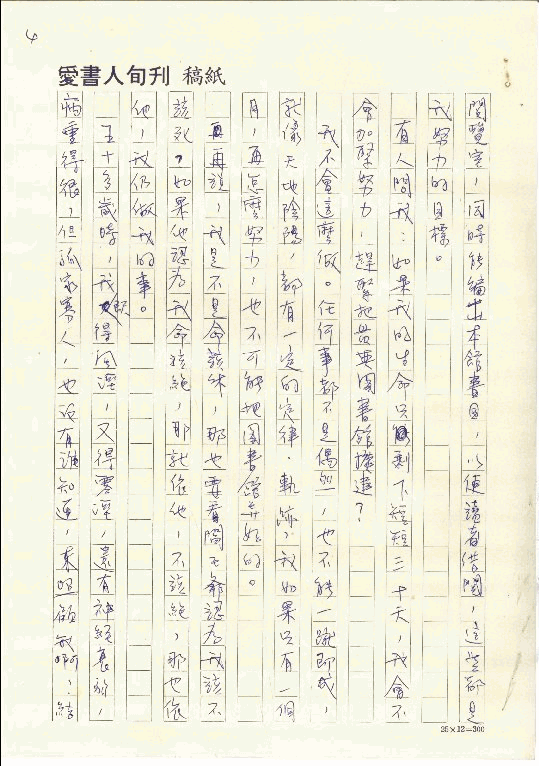 4
愛書人旬刊 稿紙
閱覽室，同時能編出本館書目，以便讀者借閱，這些都是
我努力的目標。
有人問我：如果我的生命只剩下短短三十天，我會不
會加緊努力，趕緊把 圖書館擴建？
我不會這麼做。任何事都不是偶然，也不能一蹴即成，
就像天地陰陽，都有一定的定律、軌跡，我如果只有一個
月，再怎麼努力，也不可能把圖書館弄好的。
再說，我是不是命該休，那也要看閻王爺認為我該不
該死？如果他認為我命該絕，那就依他，不該絕，那也依
他，我仍做我的事。
五十多歲時，我既得風濕，又得 濕，還有神經衰弱，
病重得很，但孤家寡人，也沒有誰知道，來照顧我啊，結
25×12=300